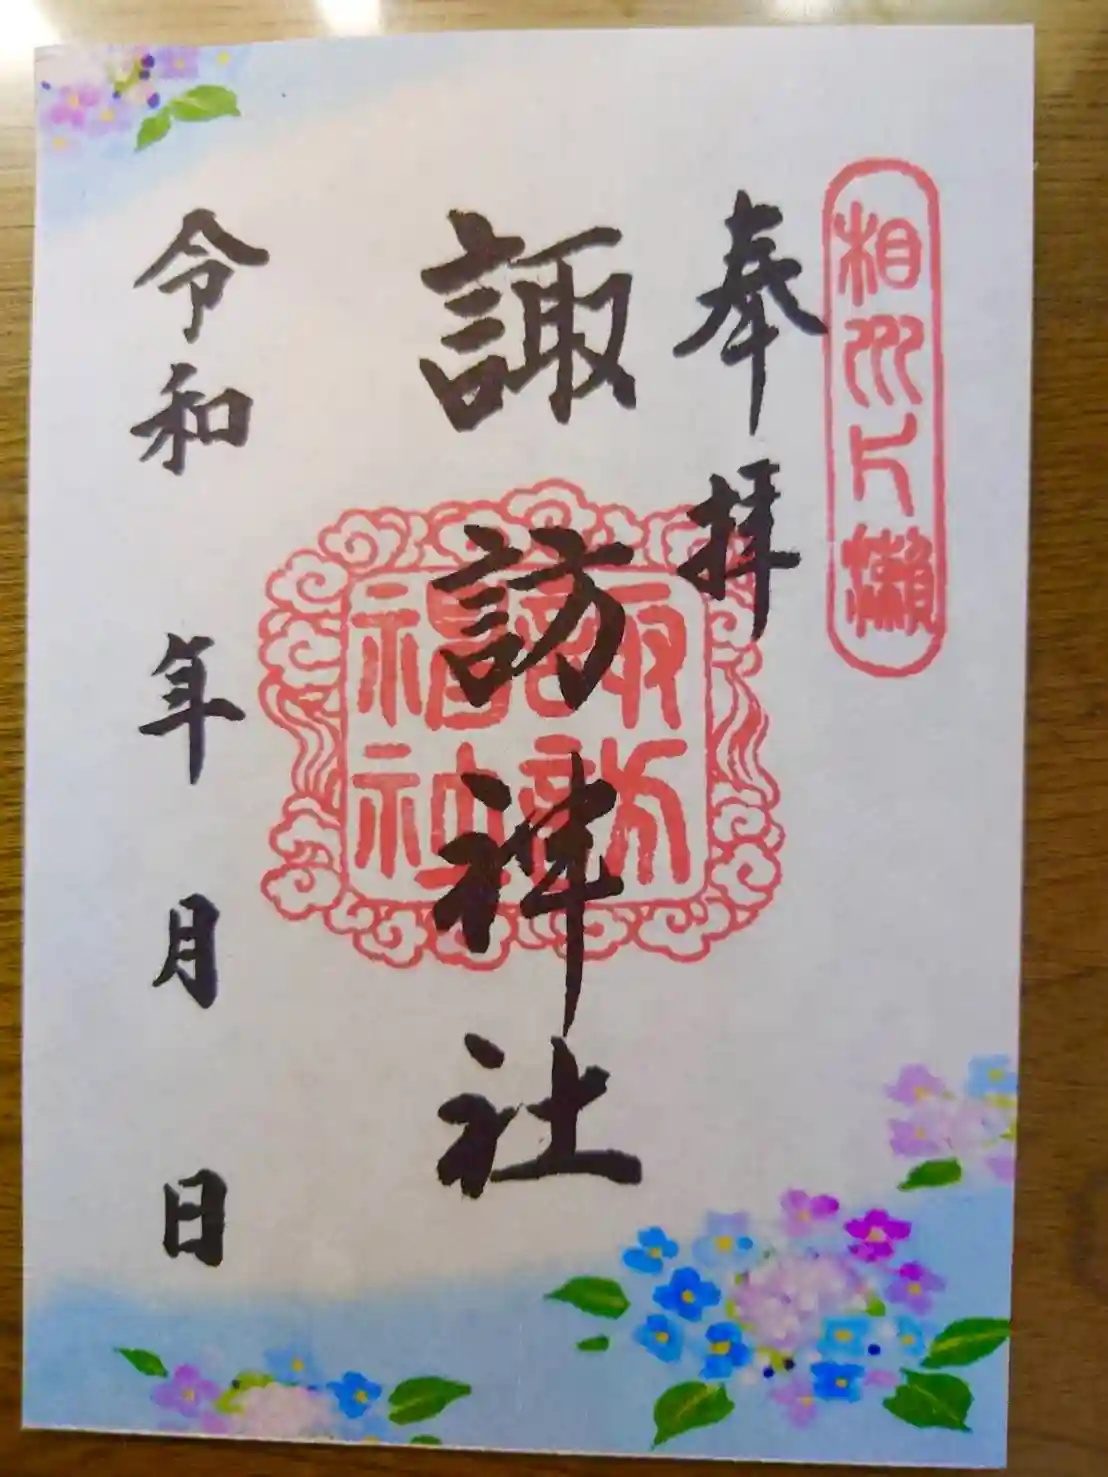 相州片瀬
奉拝
諏訪神社
諏訪
令和 年 月 日